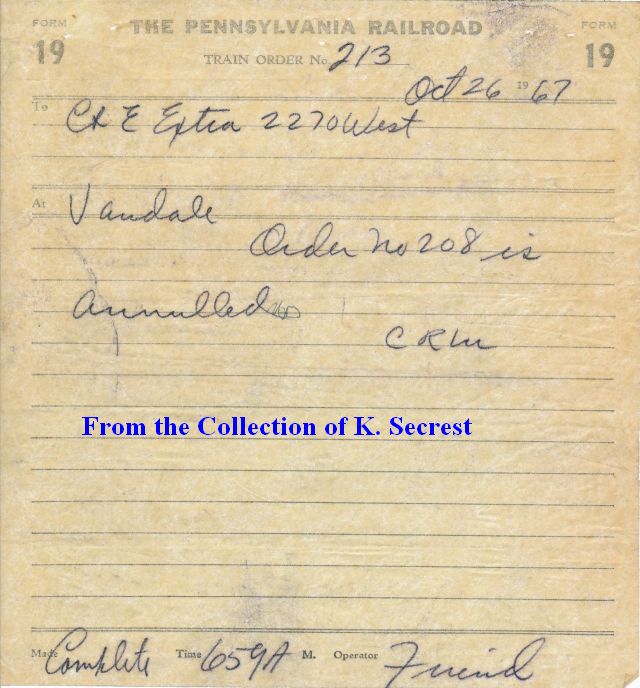 FORM THE PENNSYLVANIA RAILROAD FORM
19 TRAIN ORDER No. 213 19
Oct 26 19 67
To C & E Extra 2270 West
At Vandale
Order No 208 is
annulled
CRM
From the Collection of K. Secrest
Made Complete Time 659A M. Operator Friend